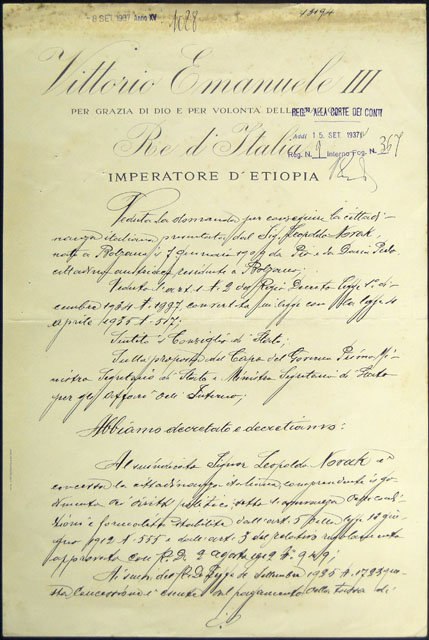 -8 SET. 1937 Anno XV
1028
13194
Vittorio Emanuele III
PER GRAZIA DI DIO E PER VOLONTÀ DELLA
REG. ALLA CORTE DEI CONTI
Re d'Italia
Addì 15 SET. 1937
Reg. N. 9 Interno Fog. N. 367
IMPERATORE D'ETIOPIA
Veduta la domanda per conseguire la cittadi-
nanza italiana presentata dal Sig. Leopoldo Novak,
nato a Bolzano il 7 gennaio da Pio e da
cittadino austriaco residente a Bolzano;
Veduto l'art. 1 N. 2 del Regio Decreto Legge 1° di-
cembre 1934 N. 1997, convertito in legge con la legge 4
aprile 1935 N. 517;
Sentito il Consiglio di Stato;
Sulla proposta del Capo del Governo Primo Mi-
nistro Segretario di Stato e Ministro Segretario di Stato
per gli Affari dell'Interno;
Abbiamo decretato e decretiamo:
Al suindicato Signor Leopoldo Novak è
concessa la cittadinanza italiana comprendente il go-
dimento dei diritti politici sotto l'osservanza delle condi-
zioni e formalità stabilite dall'art. 5 della legge 13 giu-
gno 1912 N. 555 e dall'art. 3 del relativo regolamento
approvato con R. D. 2 agosto 1912 N. 949;
A sensi del R. D. Legge settembre 1935 N. 1723 que-
sta concessione è esente dal pagamento della tassa di